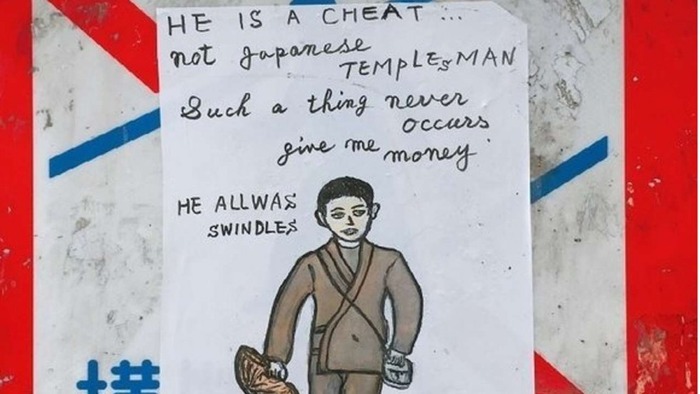 HE IS A CHEAT...
not Japanese
TEMPLESMAN
Such a thing never
occurs
give me money
HE ALLWAS
SWINDLES
横